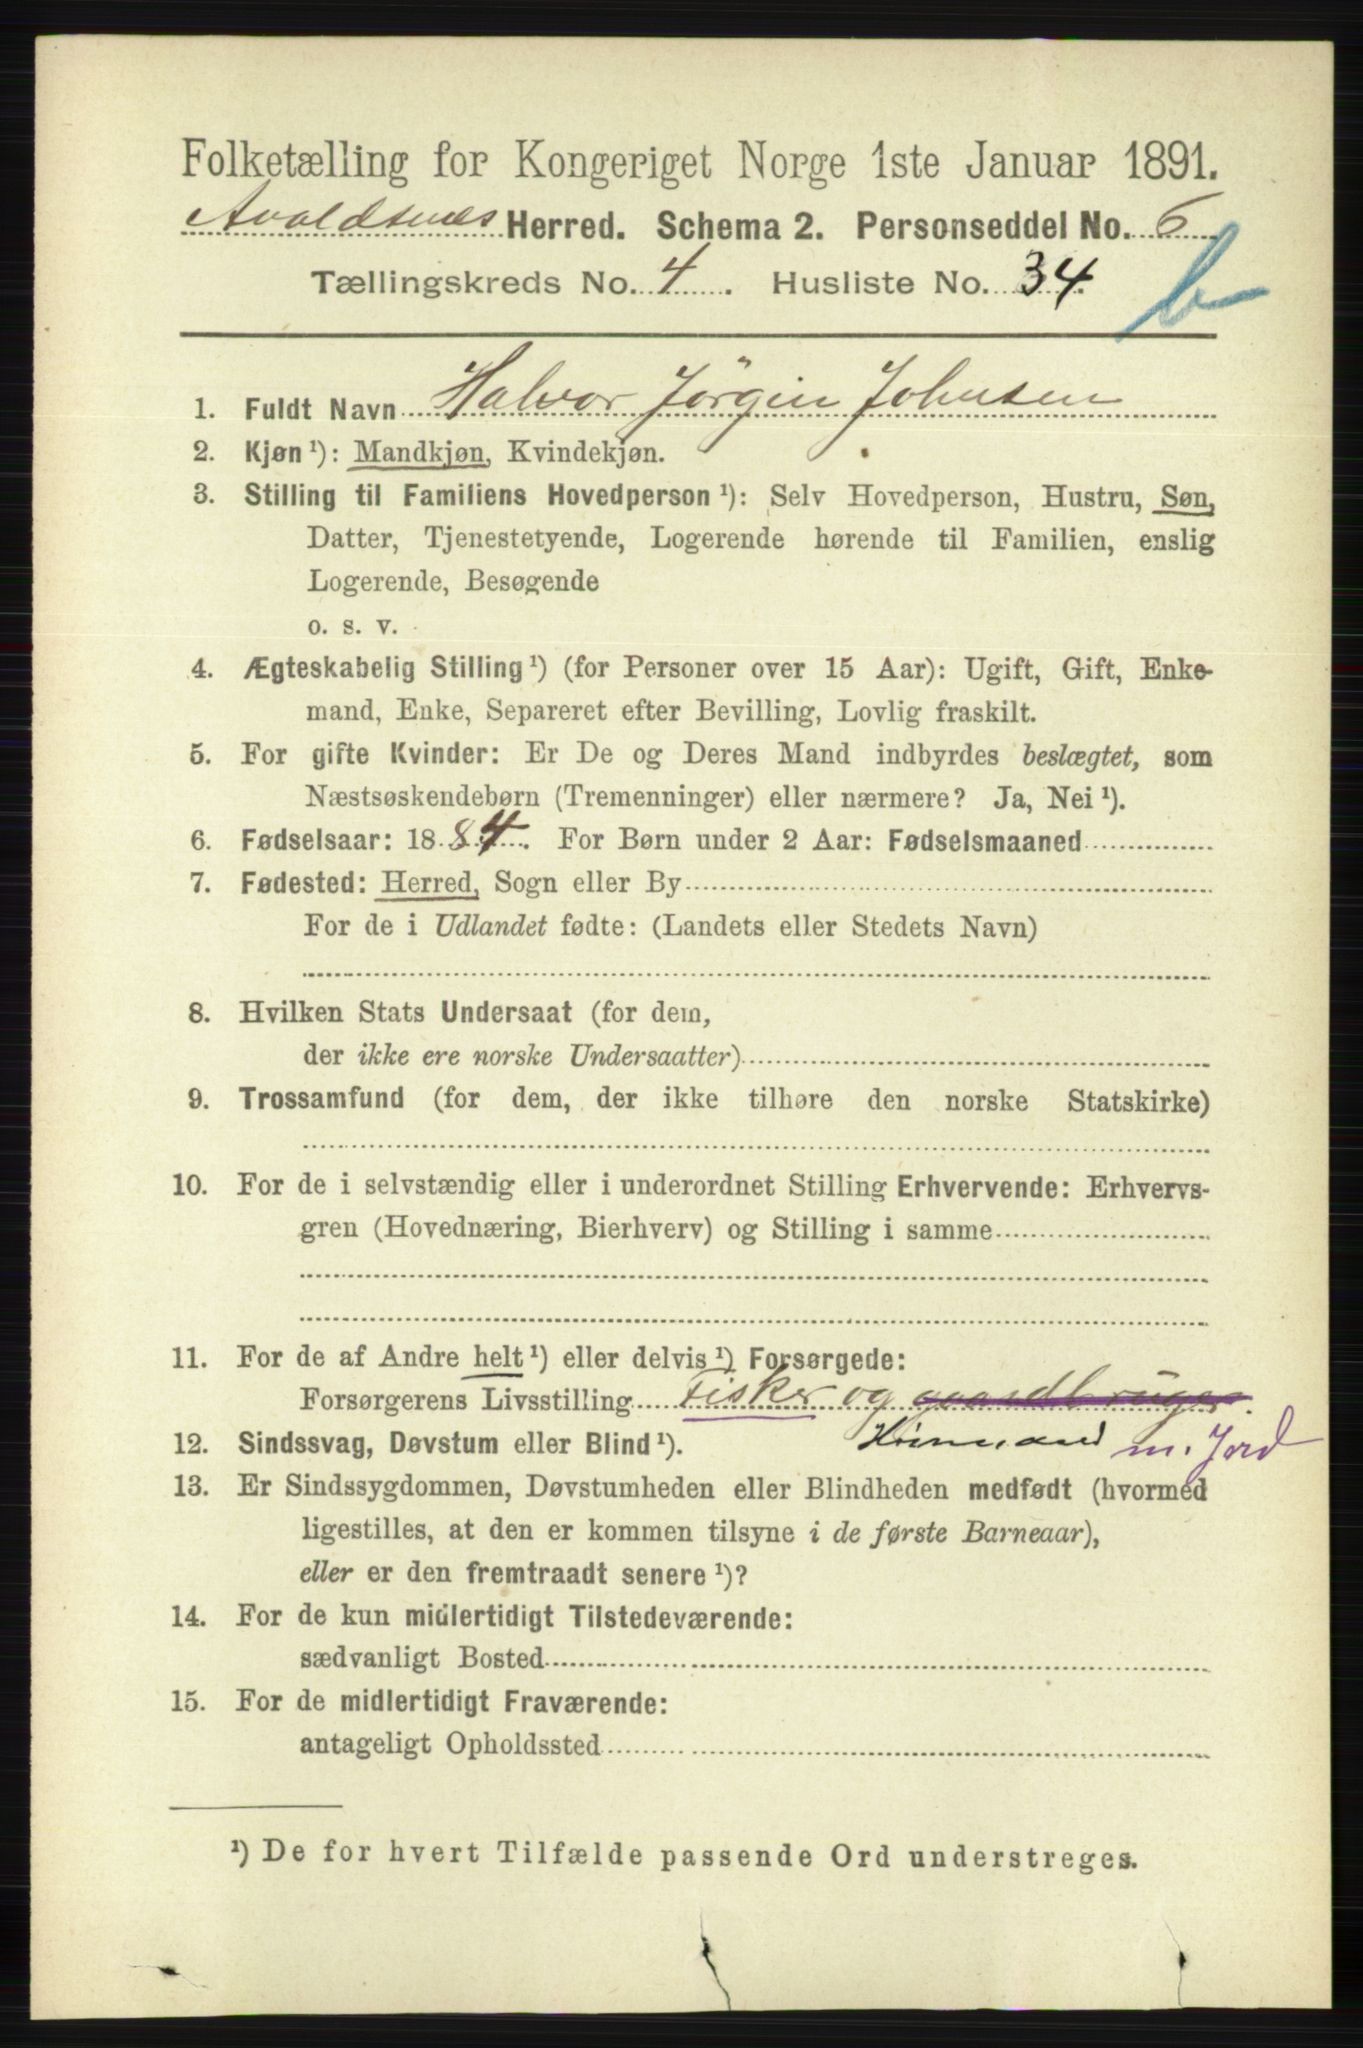 Folketælling for Kongeriget Norge 1ste Januar 1891.
Avaldsnes Herred. Schema 2. Personseddel No. 6
Tællingskreds No. 4. Husliste No. 34.
b
1. Fuldt Navn Halvor Jörgin Johnsen
2. Kjøn ¹): Mandkjøn, Kvindekjøn.
3. Stilling til Familiens Hovedperson ¹): Selv Hovedperson, Hustru, Søn,
Datter, Tjenestetyende, Logerende hørende til Familien, enslig
Logerende, Besøgende
o. s. v.
4. Ægteskabelig Stilling ¹) (for Personer over 15 Aar): Ugift, Gift, Enke-
mand, Enke, Separeret efter Bevilling, Lovlig fraskilt.
5. For gifte Kvinder: Er De og Deres Mand indbyrdes beslægtet, som
Næstsøskendebørn (Tremenninger) eller nærmere? Ja, Nei ¹).
6. Fødselsaar: 1884. For Børn under 2 Aar: Fødselsmaaned
7. Fødested: Herred, Sogn eller By
For de i Udlandet fødte: (Landets eller Stedets Navn)
8. Hvilken Stats Undersaat (for dem,
der ikke ere norske Undersaatter)
9. Trossamfund (for dem, der ikke tilhøre den norske Statskirke)
10. For de i selvstændig eller i underordnet Stilling Erhvervende: Erhvervs-
gren (Hovednæring, Bierhverv) og Stilling i samme
11. For de af Andre helt ¹) eller delvis ¹) Forsørgede:
Forsørgerens Livsstilling Fisker og gaardbruger.
12. Sindssvag, Døvstum eller Blind ¹). Huusmand m. Jord
13. Er Sindssygdommen, Døvstumheden eller Blindheden medfødt (hvormed
ligestilles, at den er kommen tilsyne i de første Barneaar),
eller er den fremtraadt senere ¹)?
14. For de kun midlertidigt Tilstedeværende:
sædvanligt Bosted
15. For de midlertidigt Fraværende:
antageligt Opholdssted
¹) De for hvert Tilfælde passende Ord understreges.